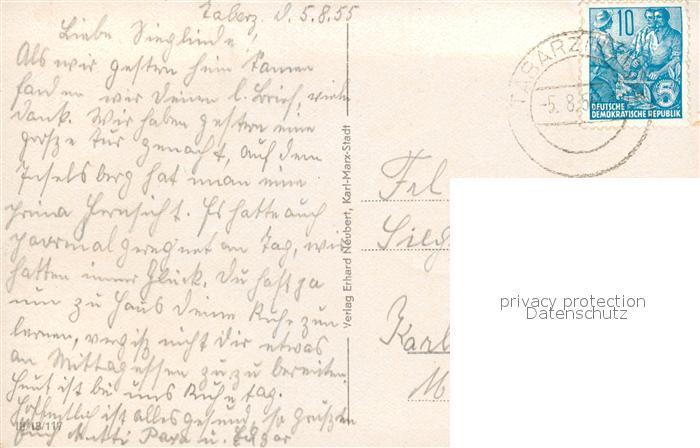 Tabarz, d. 5.8.55
Liebe Sieglinde!
Als wir gestern heim kamen
fanden wir Deinen l. Brief, vielen
dank. Wir haben gestern eine
grosze Tur gemacht, auf dem
Inselsberg hat man eine
prima Fernsicht. Es hatte auch
paarmal geregnet am Tag, wir
hatten immer Glück. Du hast ja
nun zu Haus Deine Ruhe zum
lernen, vergisz nicht Dir etwas
an Mittagessen zuzubereiten.
Heut ist bei uns Ruhetag.
Hoffentlich ist alles gesund, so grüszen
Dich Mutti Papa u. Edgar
18/18/117
Verlag Erhard Neubert, Karl-Marx-Stadt
TABARZ
-5. 8. 5
10
5
DEUTSCHE
DEMOKRATISCHE REPUBLIK
Sieg
Karl
M
privacy protection
Datenschutz